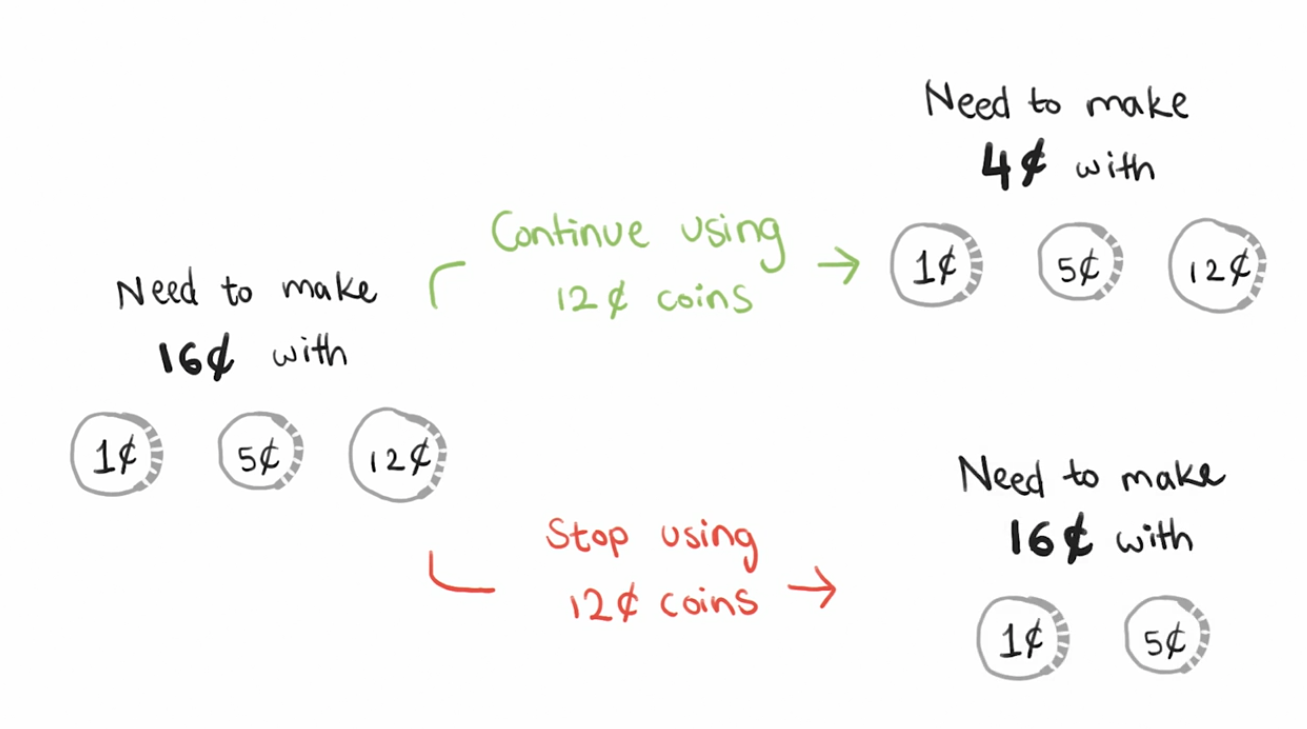 Need to make
16¢ with
1¢ 5¢ 12¢
Continue using
12¢ coins
Need to make
4¢ with
1¢ 5¢ 12¢
Stop using
12¢ coins
Need to make
16¢ with
1¢ 5¢